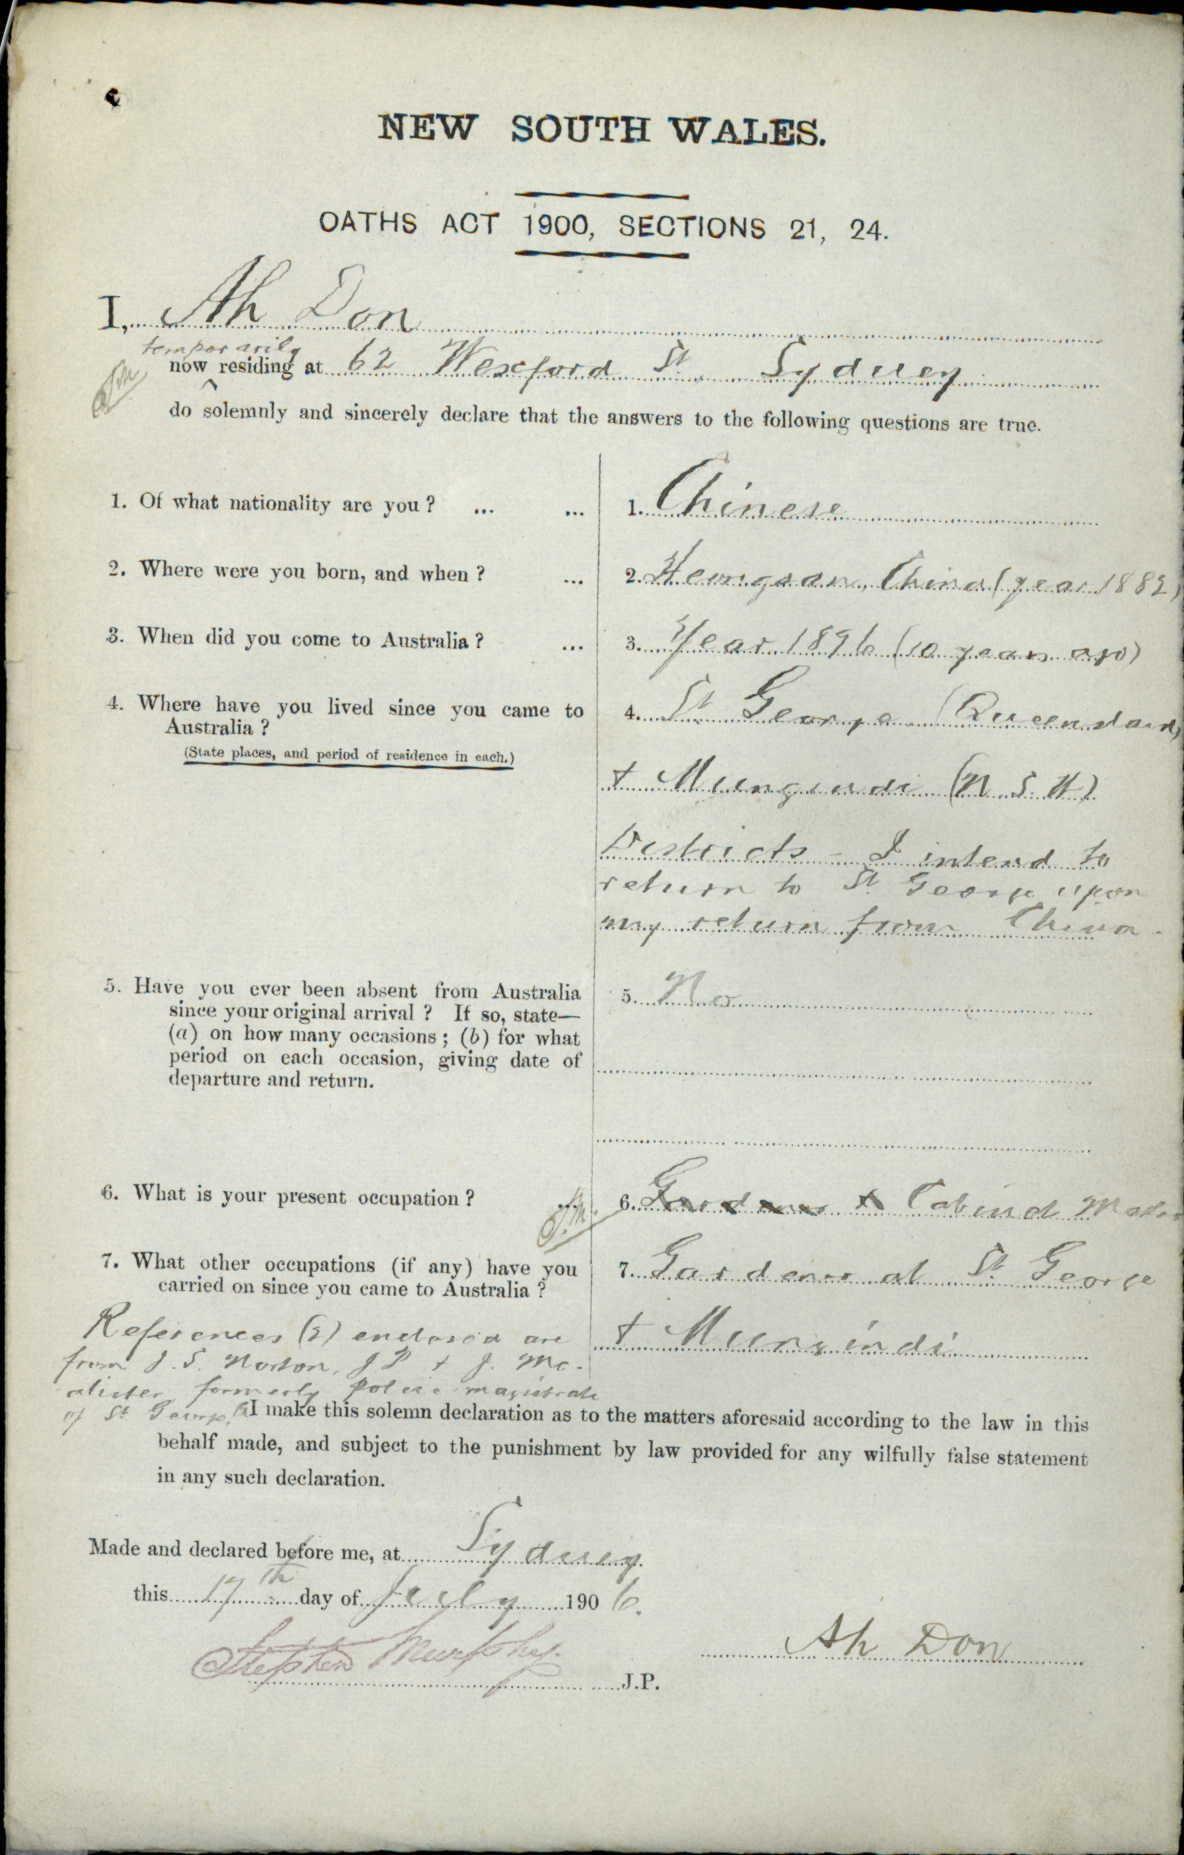 NEW SOUTH WALES.
OATHS ACT 1900, SECTIONS 21, 24.
I, Ah Don
temporarily
now residing at 62 Wexford St. Sydney
do solemnly and sincerely declare that the answers to the following questions are true.
1. Of what nationality are you? ... ...
1. Chinese
2. Where were you born, and when? ...
2. Heongsan, China (year 1882)
3. When did you come to Australia? ...
3. Year 1896 (10 years ago)
4. Where have you lived since you came to
Australia?
(State places, and period of residence in each.)
4. St. George (Queensland)
+ Mungindi (N S W)
Districts - I intend to
return to St. George upon
my return from China.
5. Have you ever been absent from Australia
since your original arrival? If so, state—
(a) on how many occasions; (b) for what
period on each occasion, giving date of
departure and return.
5. No
6. What is your present occupation? ...
6. Gardener & Cabinet Maker
7. What other occupations (if any) have you
carried on since you came to Australia?
7. Gardener at St. George
+ Mungindi
References (2) enclosed are
from J. S. Norton, J P + J. Mc-
alister formerly police magistrate
of St. George
I make this solemn declaration as to the matters aforesaid according to the law in this
behalf made, and subject to the punishment by law provided for any wilfully false statement
in any such declaration.
Made and declared before me, at Sydney
this 17th day of July 1906.
Stephen Murphy J.P.
Ah Don